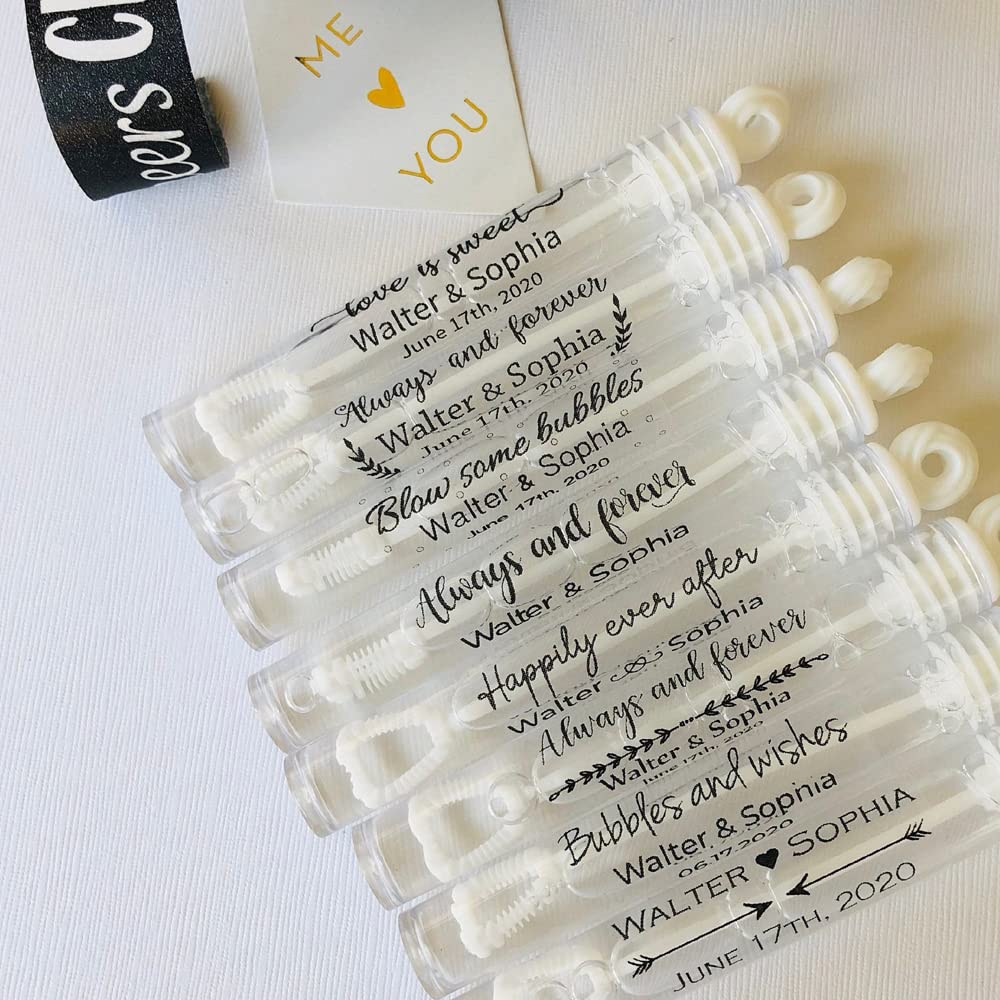 eers Ch
ME
YOU
love is sweet
Walter & Sophia
June 17th, 2020
Always and forever
Walter & Sophia
June 17th, 2020
Blow some bubbles
Walter & Sophia
June 17th, 2020
Always and forever
Walter & Sophia
Happily ever after
Walter Sophia
Always and forever
Walter & Sophia
June 17th, 2020
Bubbles and wishes
Walter & Sophia
06.17.2020
WALTER SOPHIA
JUNE 17TH, 2020